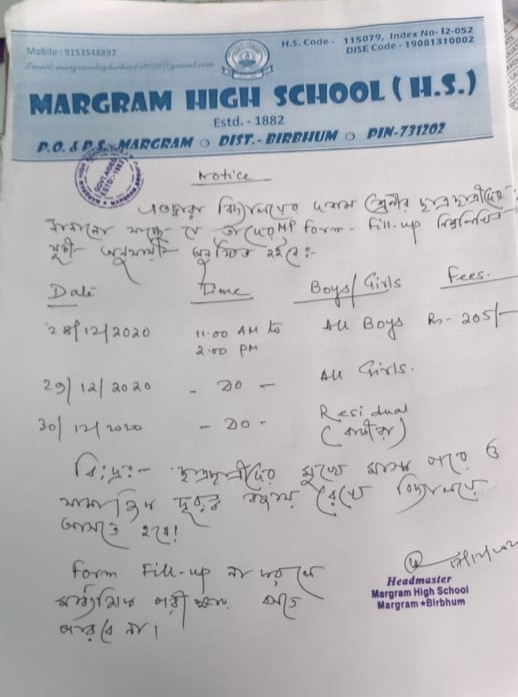 Mobile: 9153548897
H.S. Code - 115079, Index No- I2-052
DISE Code - 19081310002
MARGRAM HIGH SCHOOL ( H.S.)
Estd. - 1882
P.O. & P.S.- MARGRAM ○ DIST.- BIRBHUM ○ PIN-731202
Notice
এতদ্বারা বিদ্যালয়ের দশম শ্রেণীর ছাত্রছাত্রীদের
জানানো যাচ্ছে যে তাদের MP Form - Fill-up নিম্নলিখিত
সূচী অনুযায়ী অনুষ্ঠিত হইবে:-
Date Time Boys/Girls Fees.
28/12/2020 11.00 AM to 2.00 PM All Boys Rs- 205/-
29/12/2020 - Do - All Girls.
30/12/2020 - Do - Residual
বি:দ্র:- ছাত্রছাত্রীদের মুখে মাস্ক পরে ও
সামাজিক দূরত্ব বজায় রেখে বিদ্যালয়ে
আসতে হবে!
Form Fill-up না করলে
মাধ্যমিক পরীক্ষায় বসতে
পারবে না।
Headmaster
Margram High School
Margram ★ Birbhum